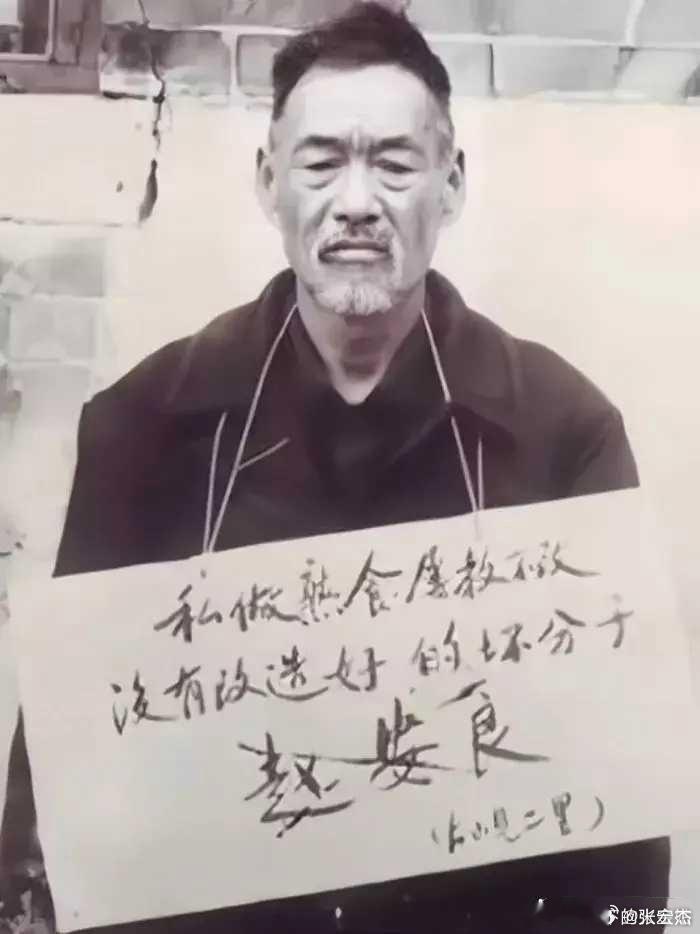 私做熟食屡教不改
没有改造好的坏分子
赵安良
二里)
的张宏杰